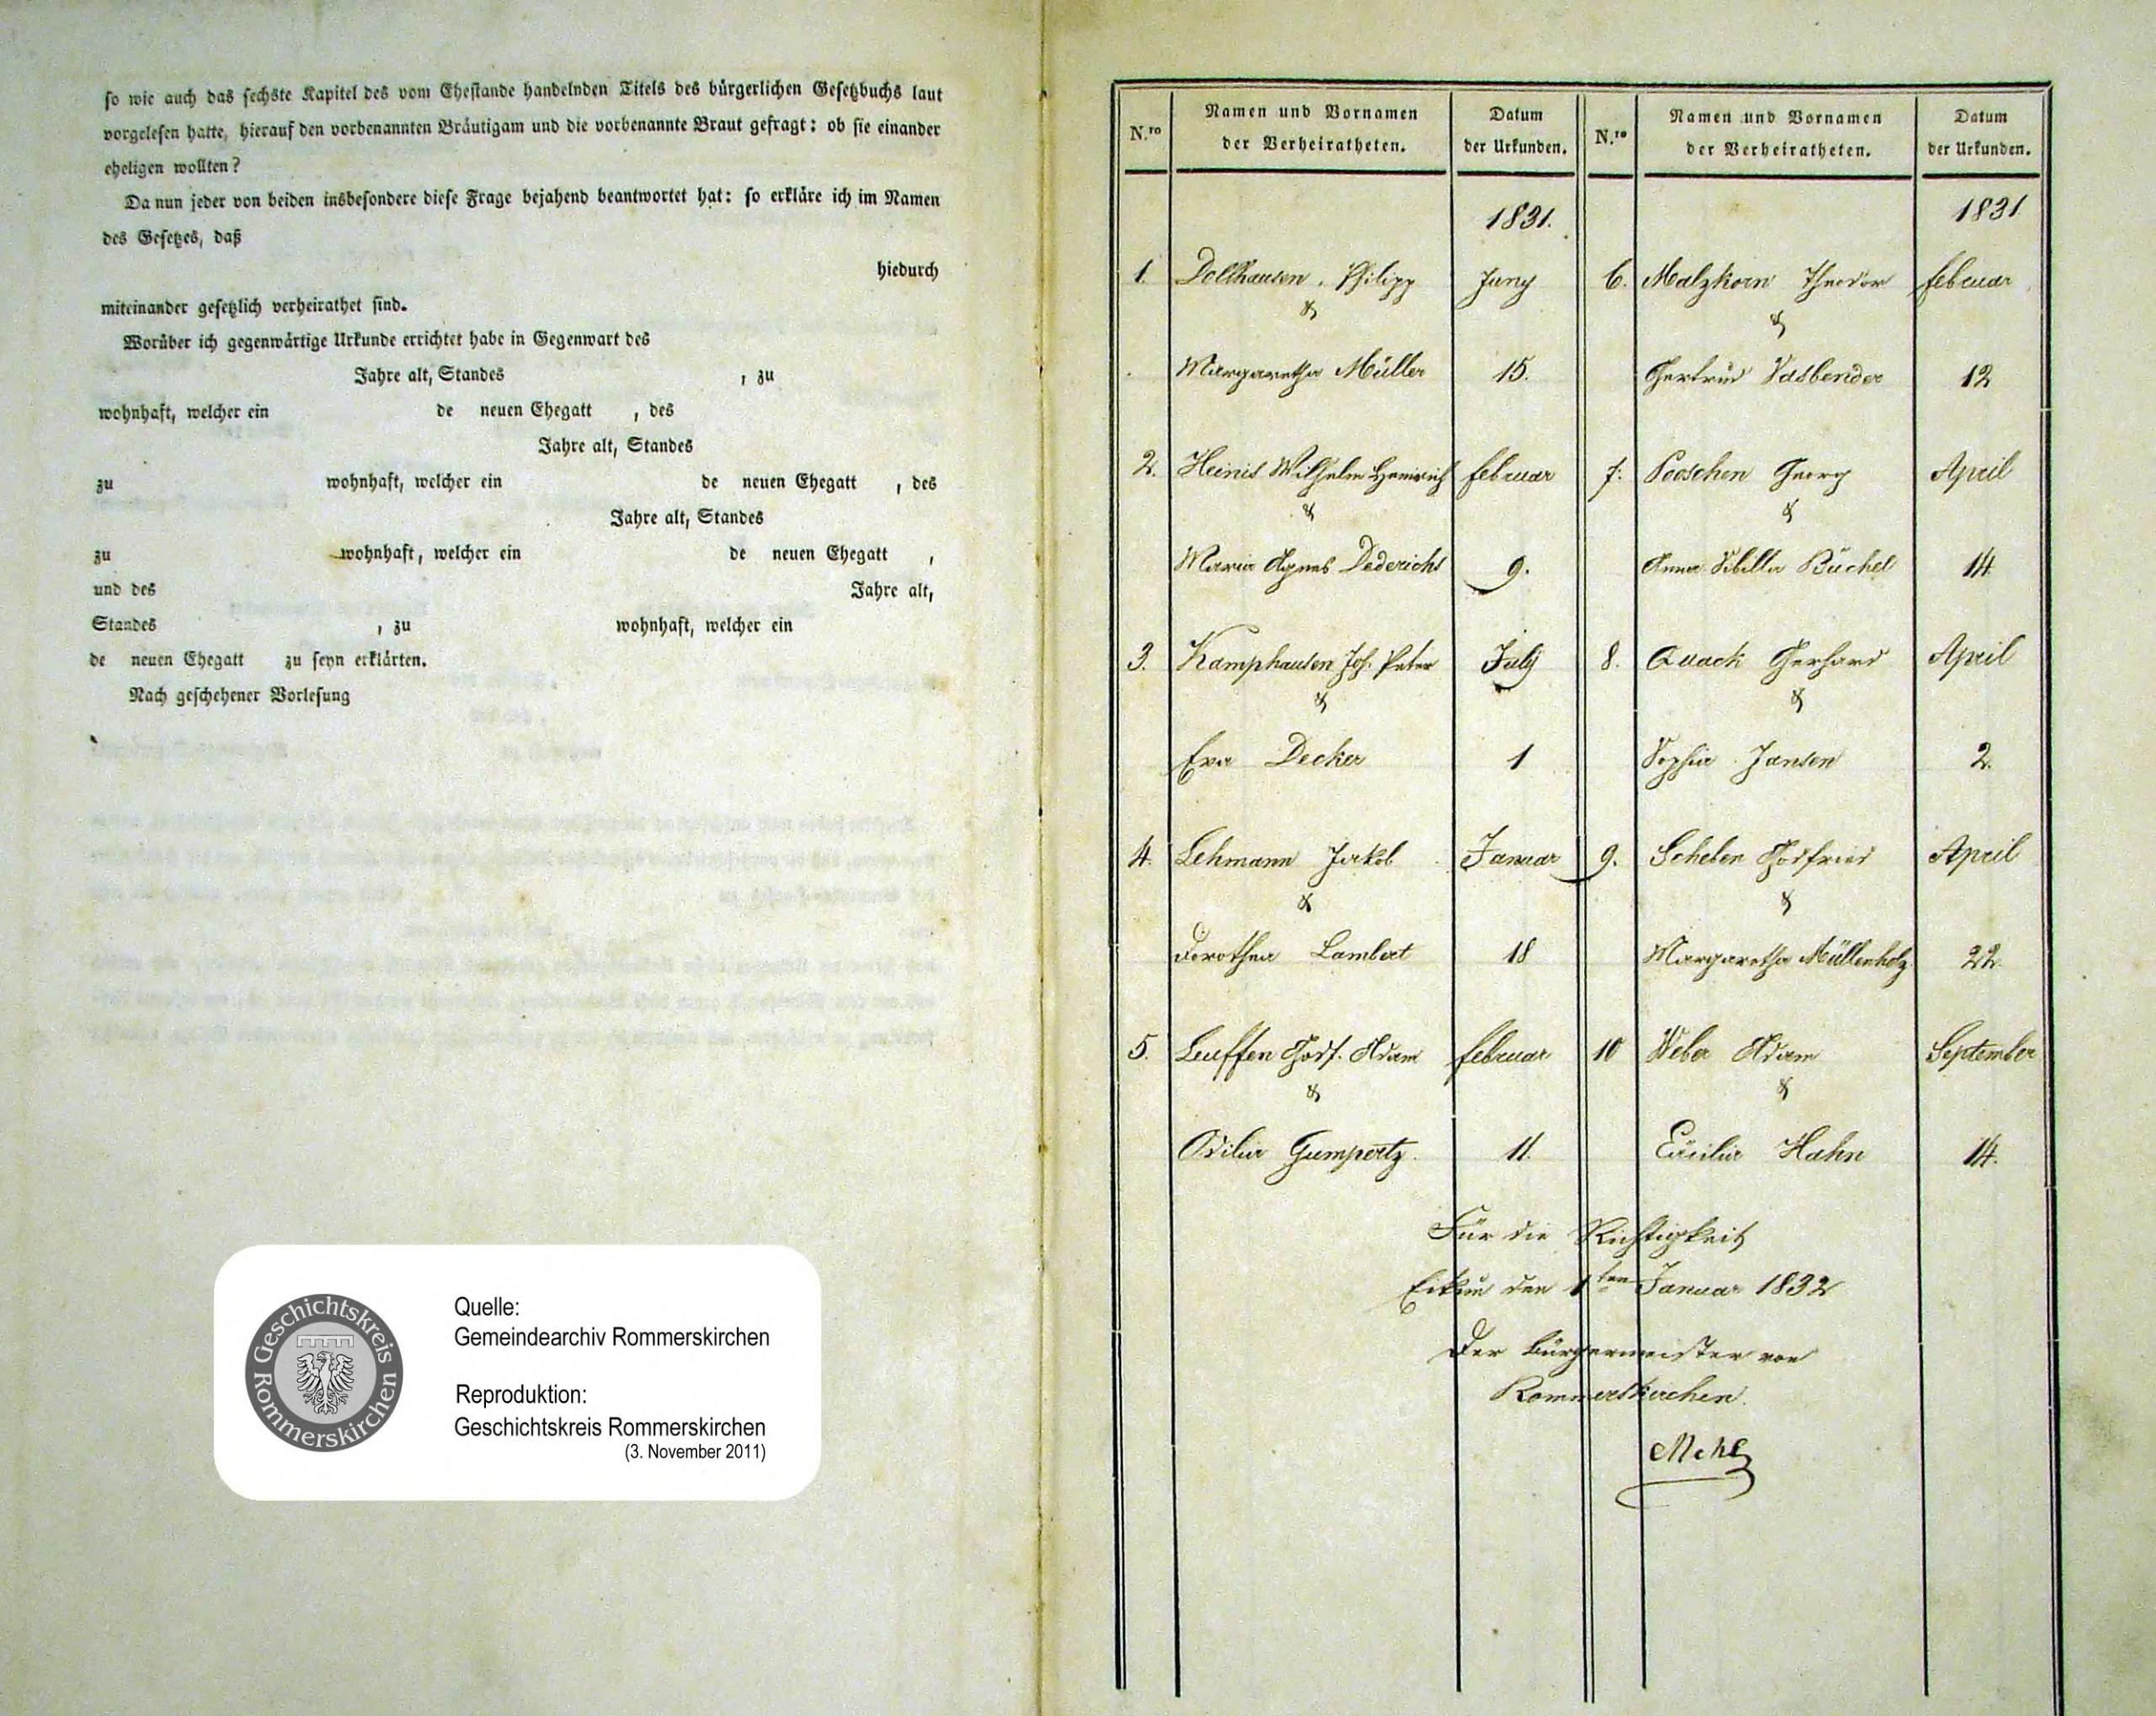 so wie auch das sechste Kapitel des vom Ehestande handelnden Titels des bürgerlichen Gesetzbuchs laut
vorgelesen hatte, hierauf den vorbenannten Bräutigam und die vorbenannte Braut gefragt: ob sie einander
eheligen wollten?
Da nun jeder von beiden insbesondere diese Frage bejahend beantwortet hat: so erkläre ich im Namen
des Gesetzes, daß
hiedurch
miteinander gesetzlich verheirathet sind.
Worüber ich gegenwärtige Urkunde errichtet habe in Gegenwart des
Jahre alt, Standes , zu
wohnhaft, welcher ein de neuen Ehegatt , des
Jahre alt, Standes
zu wohnhaft, welcher ein de neuen Ehegatt , des
Jahre alt, Standes
zu wohnhaft, welcher ein de neuen Ehegatt ,
und des Jahre alt,
Standes , zu wohnhaft, welcher ein
de neuen Ehegatt zu seyn erklärten.
Nach geschehener Vorlesung
Geschichtskreis Rommerskirchen
Quelle:
Gemeindearchiv Rommerskirchen
Reproduktion:
Geschichtskreis Rommerskirchen
(3. November 2011)
N.ro Namen und Vornamen der Verheiratheten. Datum der Urkunden.
1831.
1. Dollhausen, Philipp Juny
&
Margaretha Müller 15.
2. Heinis Wilhelm Heinrich februar
&
Maria Agnes Dederichs 9.
3. Kamphausen Joh. Peter July
&
Eva Decker 1
4. Lehmann Jakob Januar
&
Dorothea Lambert 18
5. Leuffen Godf. Adam februar
&
Odilia Gumpertz. 11.
N.ro Namen und Vornamen der Verheiratheten. Datum der Urkunden.
1831
6. Malzkorn Theodor februar
&
Gertrud Vasbender 12
7. Poeschen Georg April
&
Anna Sibilla Büchel 14
8. Quack Gerhard April
&
Sophia Jansen 2.
9. Scheben Godfried April
&
Margaretha Müllenholz 22.
10 Weber Adam September
&
Cäcilia Hahn 14.
Für die Richtigkeit
Eckum den 1ten Januar 1832
Der Bürgermeister von
Rommerskirchen.